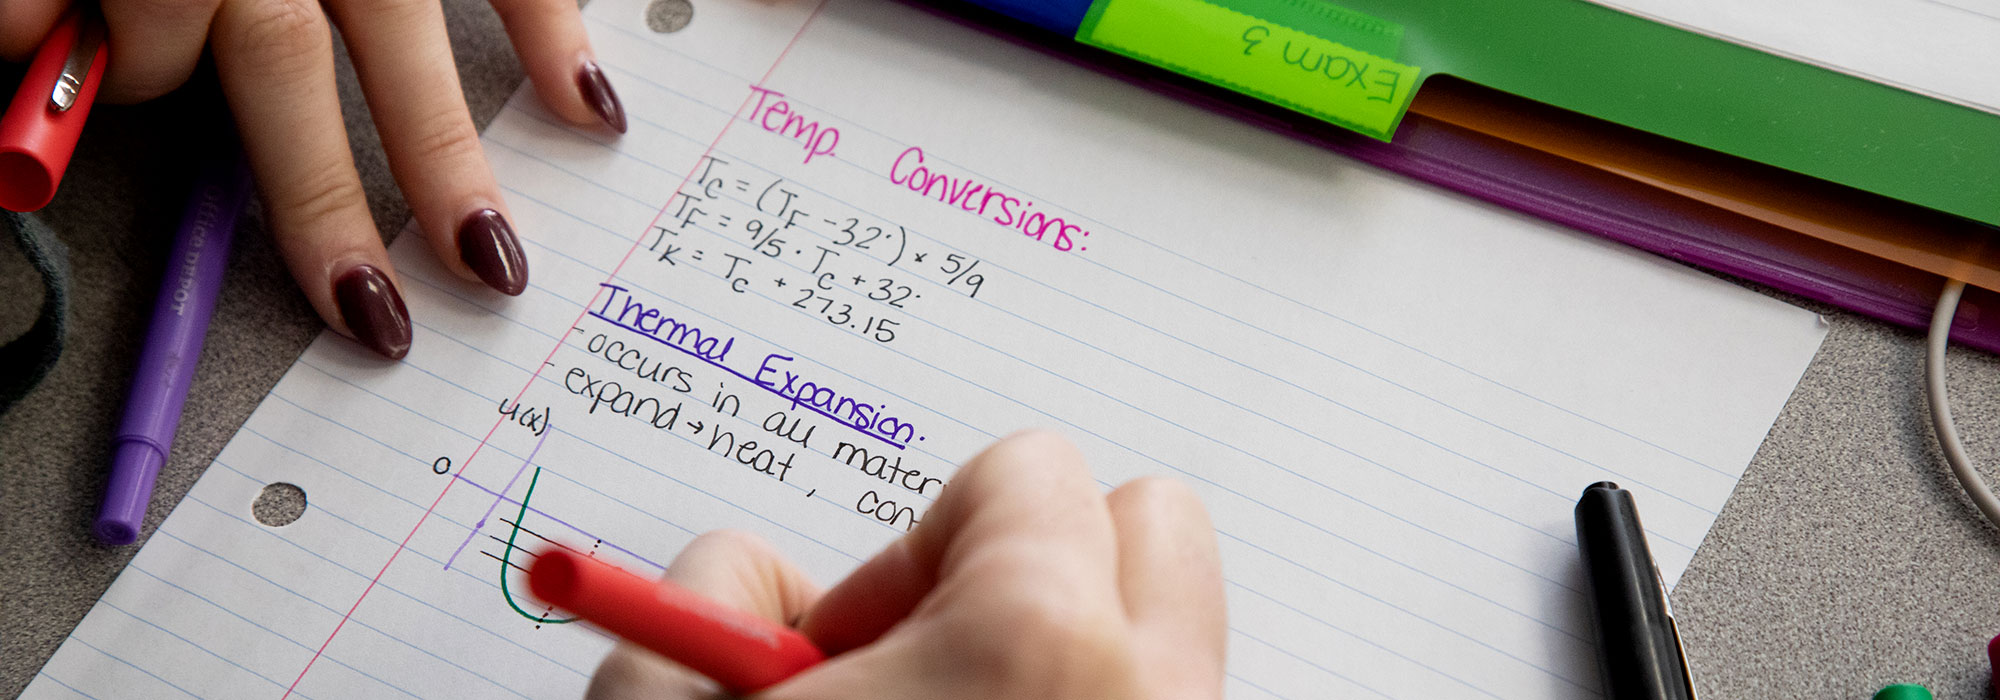 Exam 3
Temp. Conversions:
T_C = (T_F - 32°) × 5/9
T_F = 9/5 · T_C + 32°
T_K = T_C + 273.15
Thermal Expansion.
- occurs in all
- expand → heat,
U(x)
0
Office DEPOT